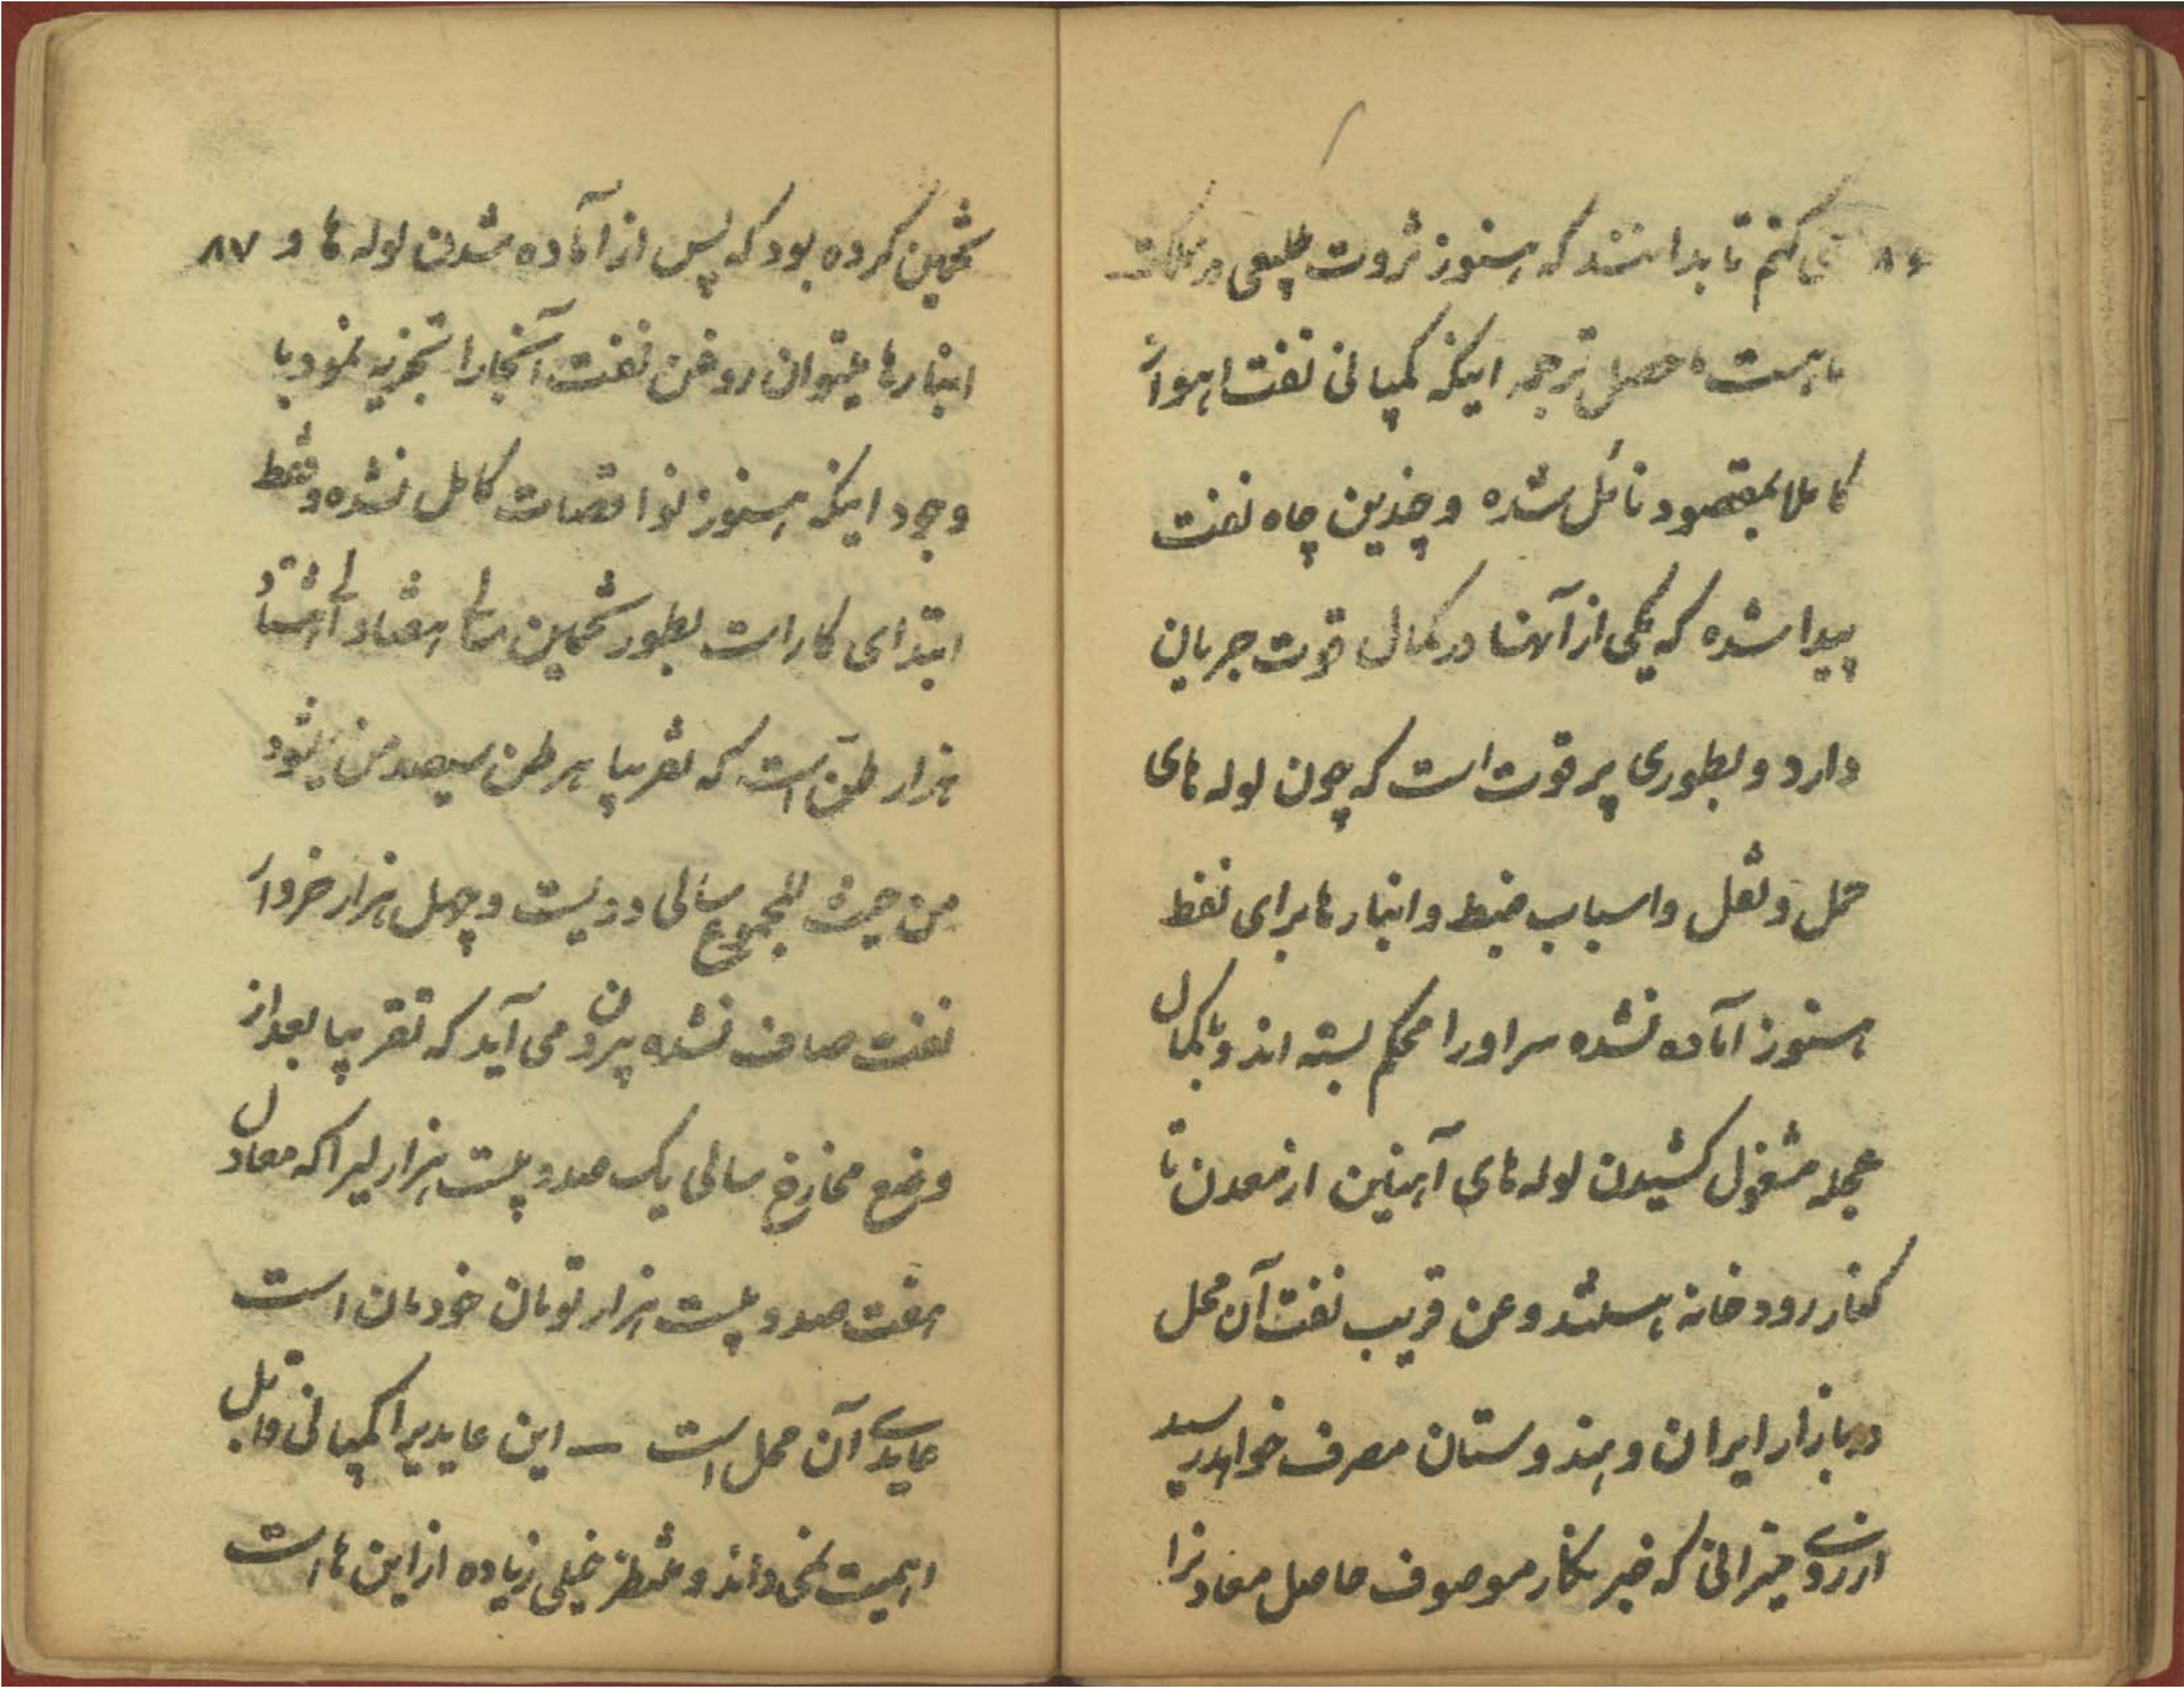 ۸۶ می کنم تا بدانند که هنوز ثروت طبیعی در مملکت
ما هست، حصل ترجمه اینکه کمپانی نفت اهواز
کاملا بمقصود نائل شده و چندین چاه نفت
پیدا شده که یکی از آنها در کمال قوت جریان
دارد و بطوری پر قوت است که چون لوله های
حمل و نقل و اسباب ضبط و انبارها برای نفط
هنوز آماده نشده سر او را محکم بسته اند و بکمال
عجله مشغول کشیدن لوله های آهنین از معدن تا
کنار رودخانه هستند و عن قریب نفت آن محل
در بازار ایران و هندوستان مصرف خواهد رسید
از روی میزانی که خبر نگار موصوف حاصل معادنرا
تخمین کرده بود که پس از آماده شدن لوله ها و ۸۷
انبارها میتوان روغن نفت آنجا را تجزیه نمود با
وجود اینکه هنوز نواقصات کامل نشده و فقط
ابتدای کار است بطور تخمین سالی هفتاد الی هشتاد
هزار طن است که تقریبا هر طن سیصد من میشود
من حیث المجموع سالی دویست و چهل هزار خروار
نفت صاف نشده بیرون می آید که تقریبا بعد از
وضع مخارج سالی یک صد و بیست هزار لیرا که معادل
هفت صد و بیست هزار تومان خودمان است
عایدی آن محل است — این عایدیرا کمپانی قابل
اهمیت نمی داند و منتظر خیلی زیاده از این ها است